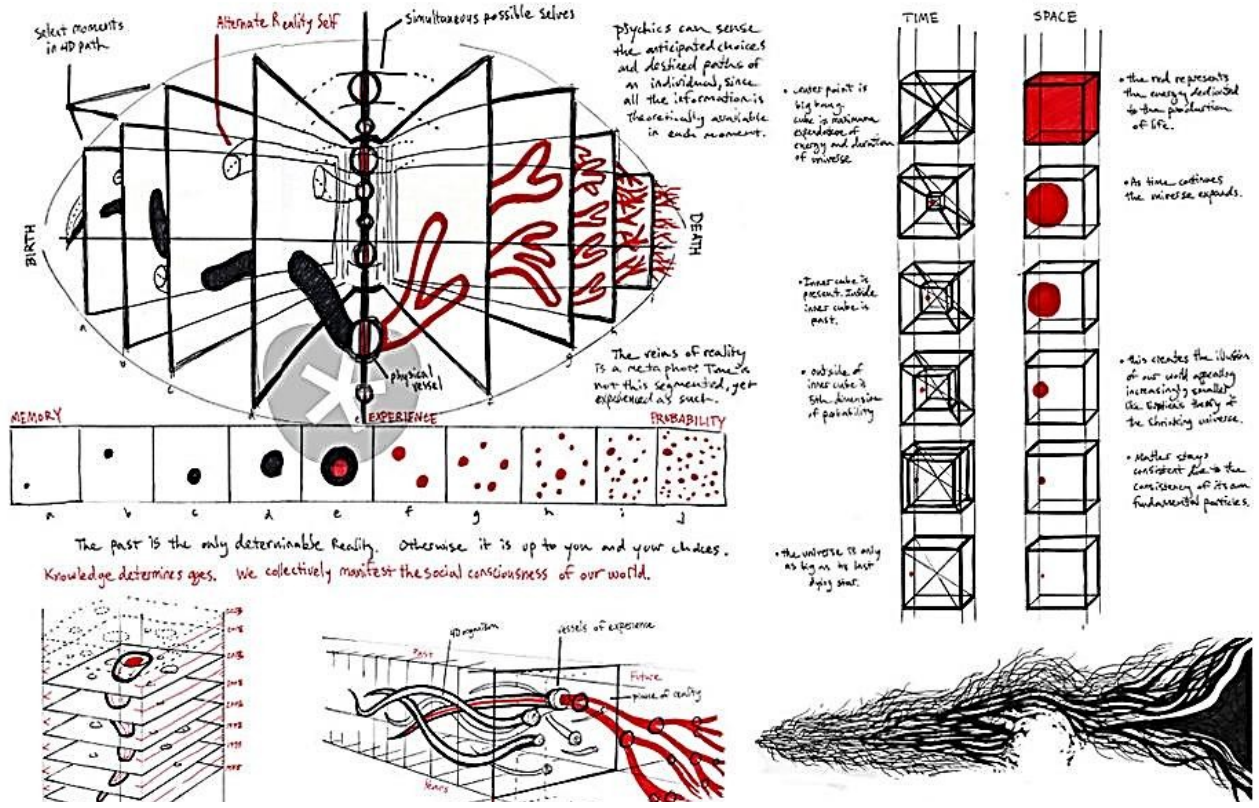 Select moments
in 4D path
Alternate Reality Self
simultaneous possible selves
Psychics can sense
the anticipated choices
and destined paths of
an individual, since
all the information is
theoretically available
in each moment.
BIRTH
DEATH
a
b
c
g
h
i
physical
vessel
The veins of reality
is a metaphor. Time is
not this segmented, yet
experienced as such.
MEMORY
EXPERIENCE
PROBABILITY
a b c d e f g h i j
The past is the only determinable Reality. Otherwise it is up to you and your choices.
Knowledge determines ages. We collectively manifest the social consciousness of our world.
TIME
• center point is
big bang.
cube is maximum
expendance of
energy and duration
of universe
• Inner cube is
present. Inside
inner cube is
past.
• outside of
inner cube is
5th dimension
of probability
• the universe is only
as big as its last
dying star.
SPACE
• the red represents
the energy dedicated
to the production
of life.
• As time continues
the universe expands.
• this creates the illusion
of our world appearing
increasingly smaller
like theory of
the shrinking universe.
• Matter stays
consistent due to the
consistency of its own
fundamental particles.
4D organism
vessels of experience
Past
Future
plane of reality
Years